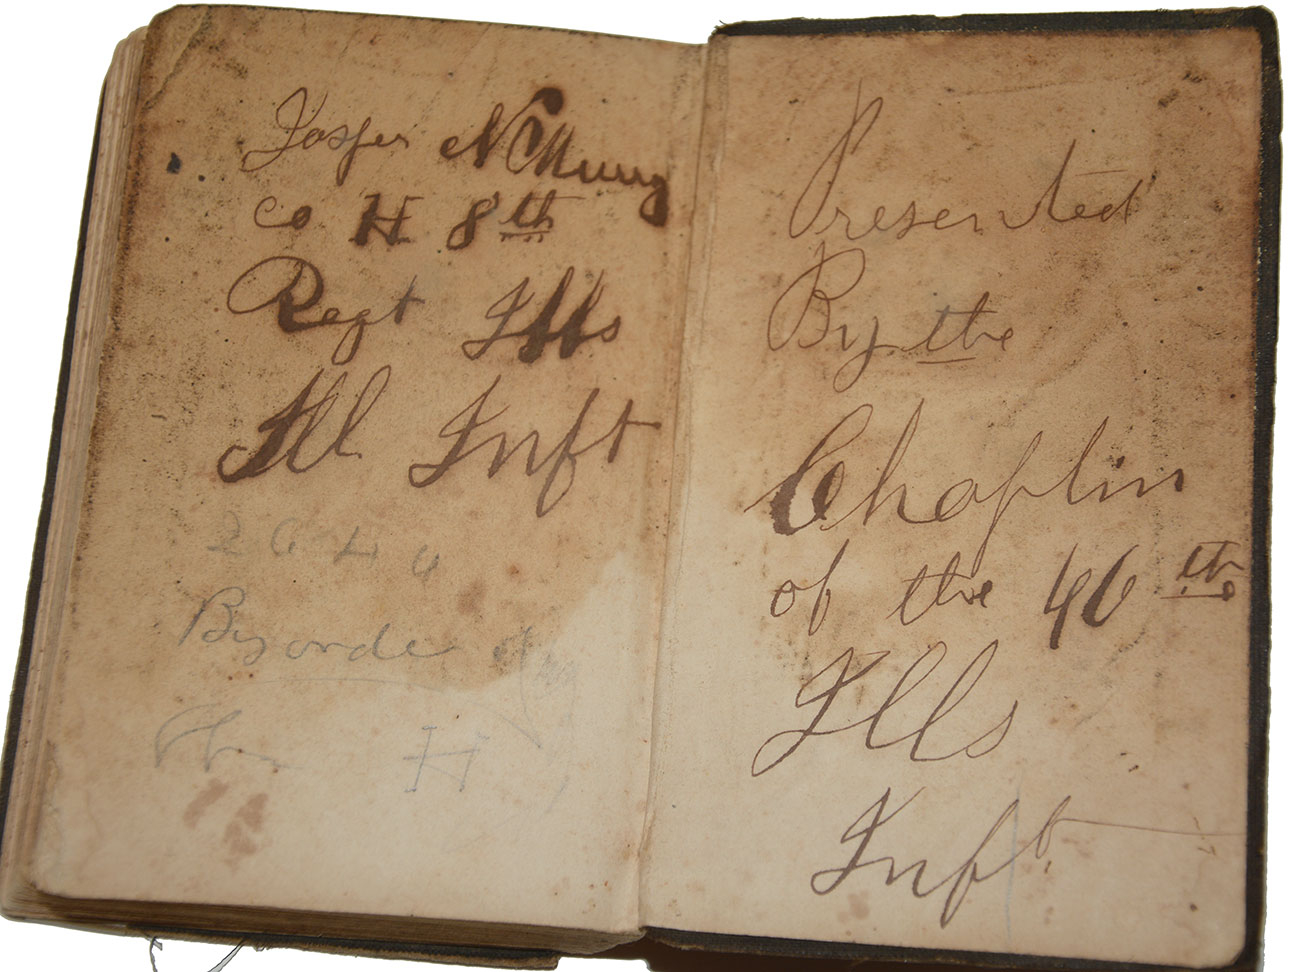 Jasper N
co H 8th
Regt Ills
Ill Inft
2644
By orde
H
Presented
By the
Chaplin
of the 46th
Ills
Inft